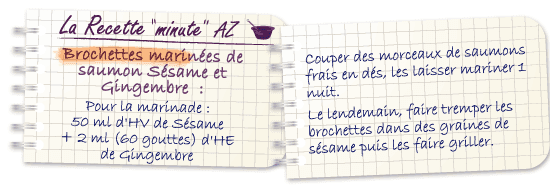 La Recette "minute" AZ
Brochettes marinées de
saumon Sésame et
Gingembre :
Pour la marinade :
50 ml d'HV de Sésame
+ 2 ml (60 gouttes) d'HE
de Gingembre
Couper des morceaux de saumons
frais en dés, les laisser mariner 1
nuit.
Le lendemain, faire tremper les
brochettes dans des graines de
sésame puis les faire griller.